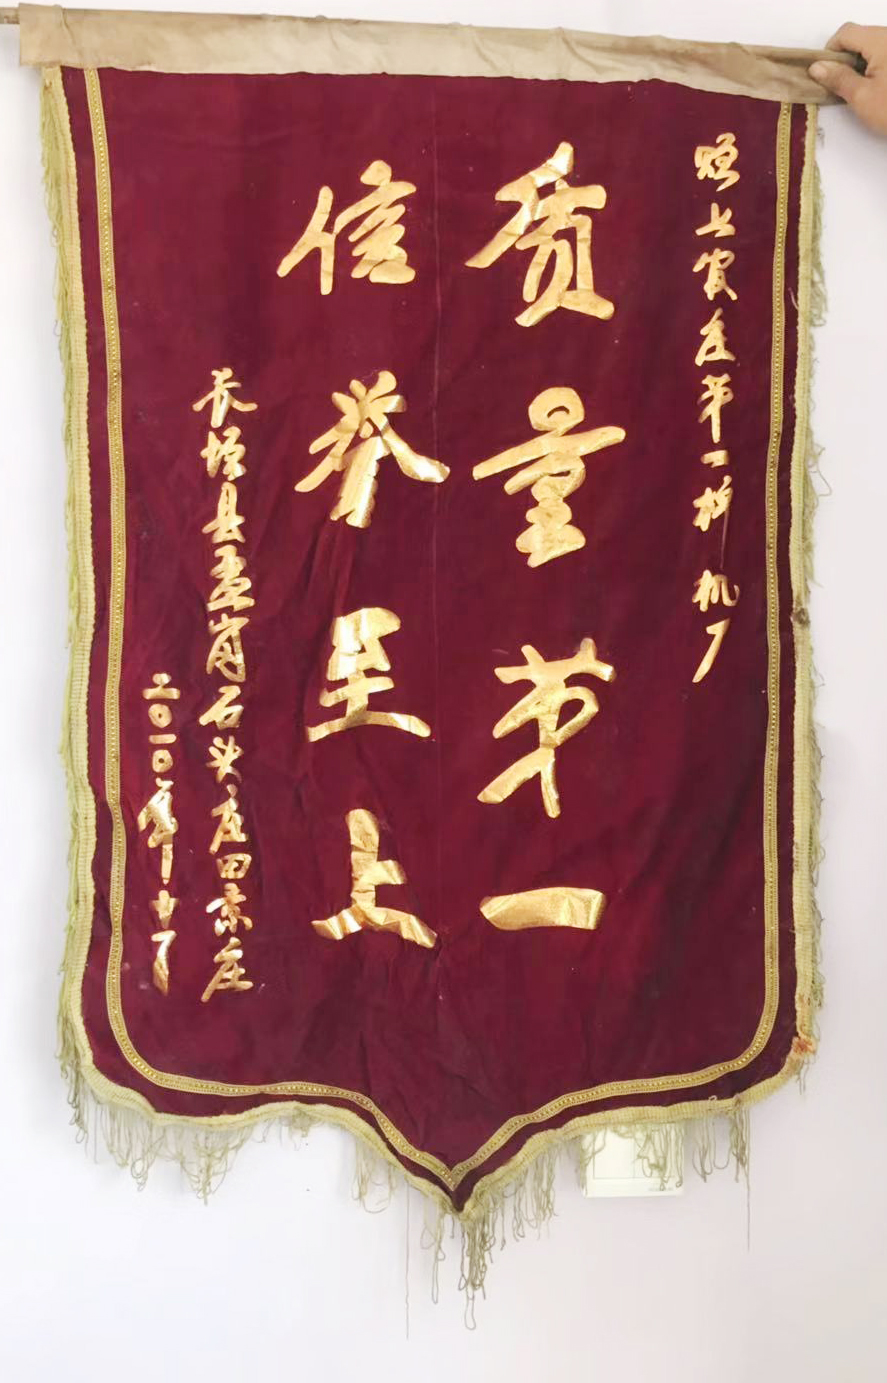 赠上官庄第一机厂
质量第一
信誉至上
长垣县孟岗石头庄田庄
二〇一〇年十月